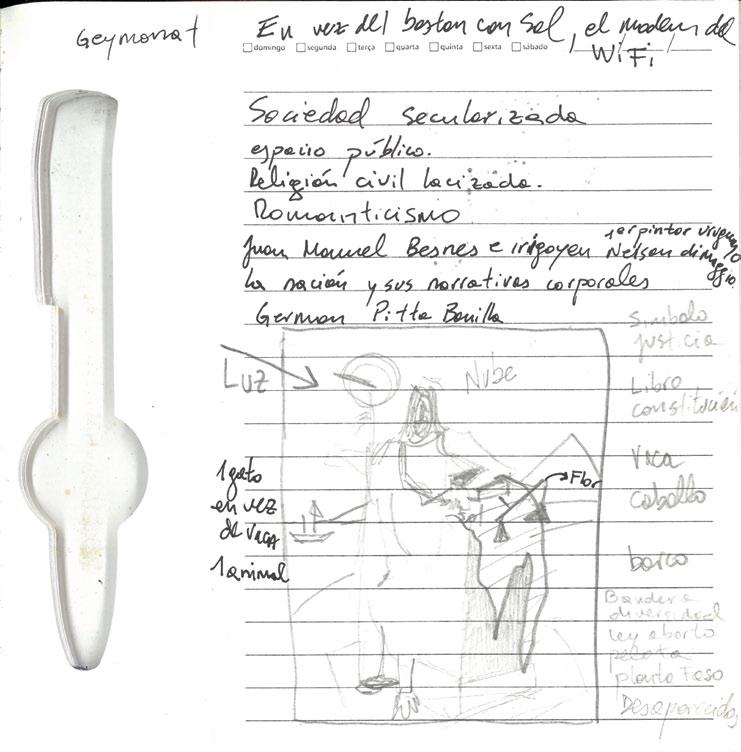 Geymonat
En vez del baston con Sol, el modem del
WiFi
domingo segunda terça quarta quinta sexta sábado
Sociedad secularizada
espacio público.
Religión civil lacizada.
Romanticismo
Juan Manuel Besnes e irigoyen 1er pintor uruguayo
Nelson di maggio.
La nación y sus narrativas corporales
German Pitta Bonilla
Simbolo
justicia
Luz
Nube
Libro
constitución
Vaca
caballo
Flor
Sol
1 gato
en vez
de vaca
1 animal
barco
Bandera
diversidad
ley aborto
pelota
planta Faso
Desaparecidos